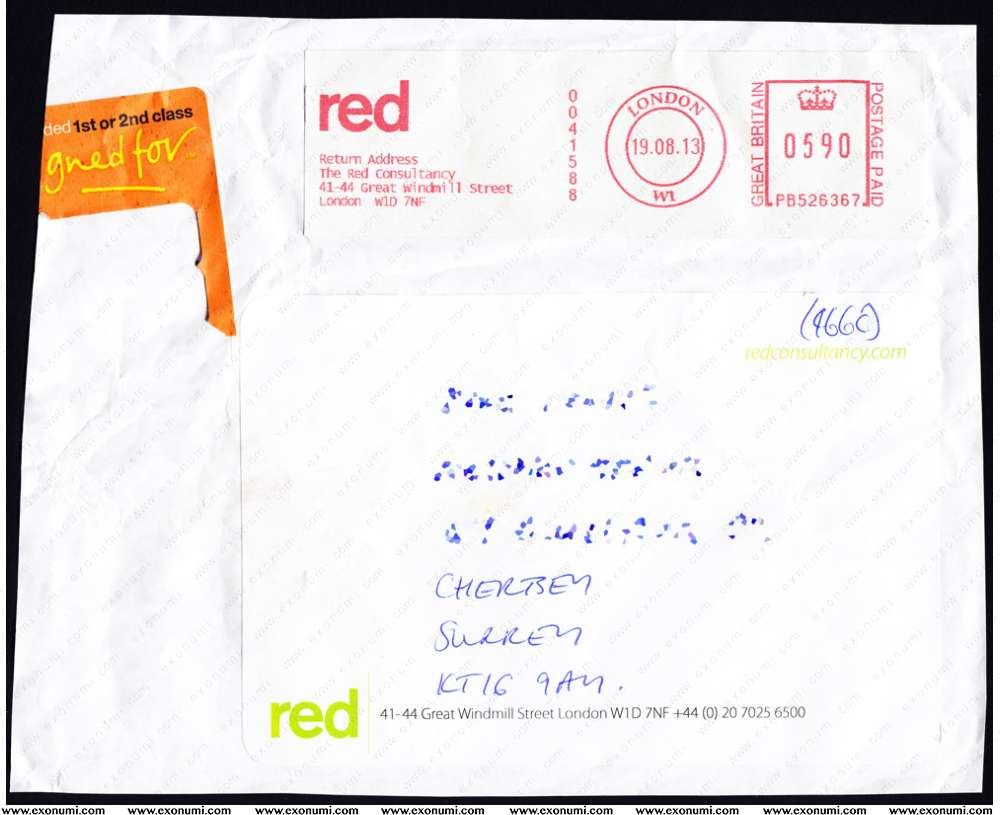 ded 1st or 2nd class
gned for
red
Return Address
The Red Consultancy
41-44 Great Windmill Street
London W1D 7NF
0041588
LONDON
19.08.13
W1
GREAT BRITAIN
0590
POSTAGE PAID
PB526367
(466C)
redconsultancy.com
CHERTSEY
SURREY
KT16 9AY.
red
41-44 Great Windmill Street London W1D 7NF +44 (0) 20 7025 6500
www.exonumi.com www.exonumi.com www.exonumi.com www.exonumi.com www.exonumi.com www.exonumi.com www.exonumi.com www.exonumi.com